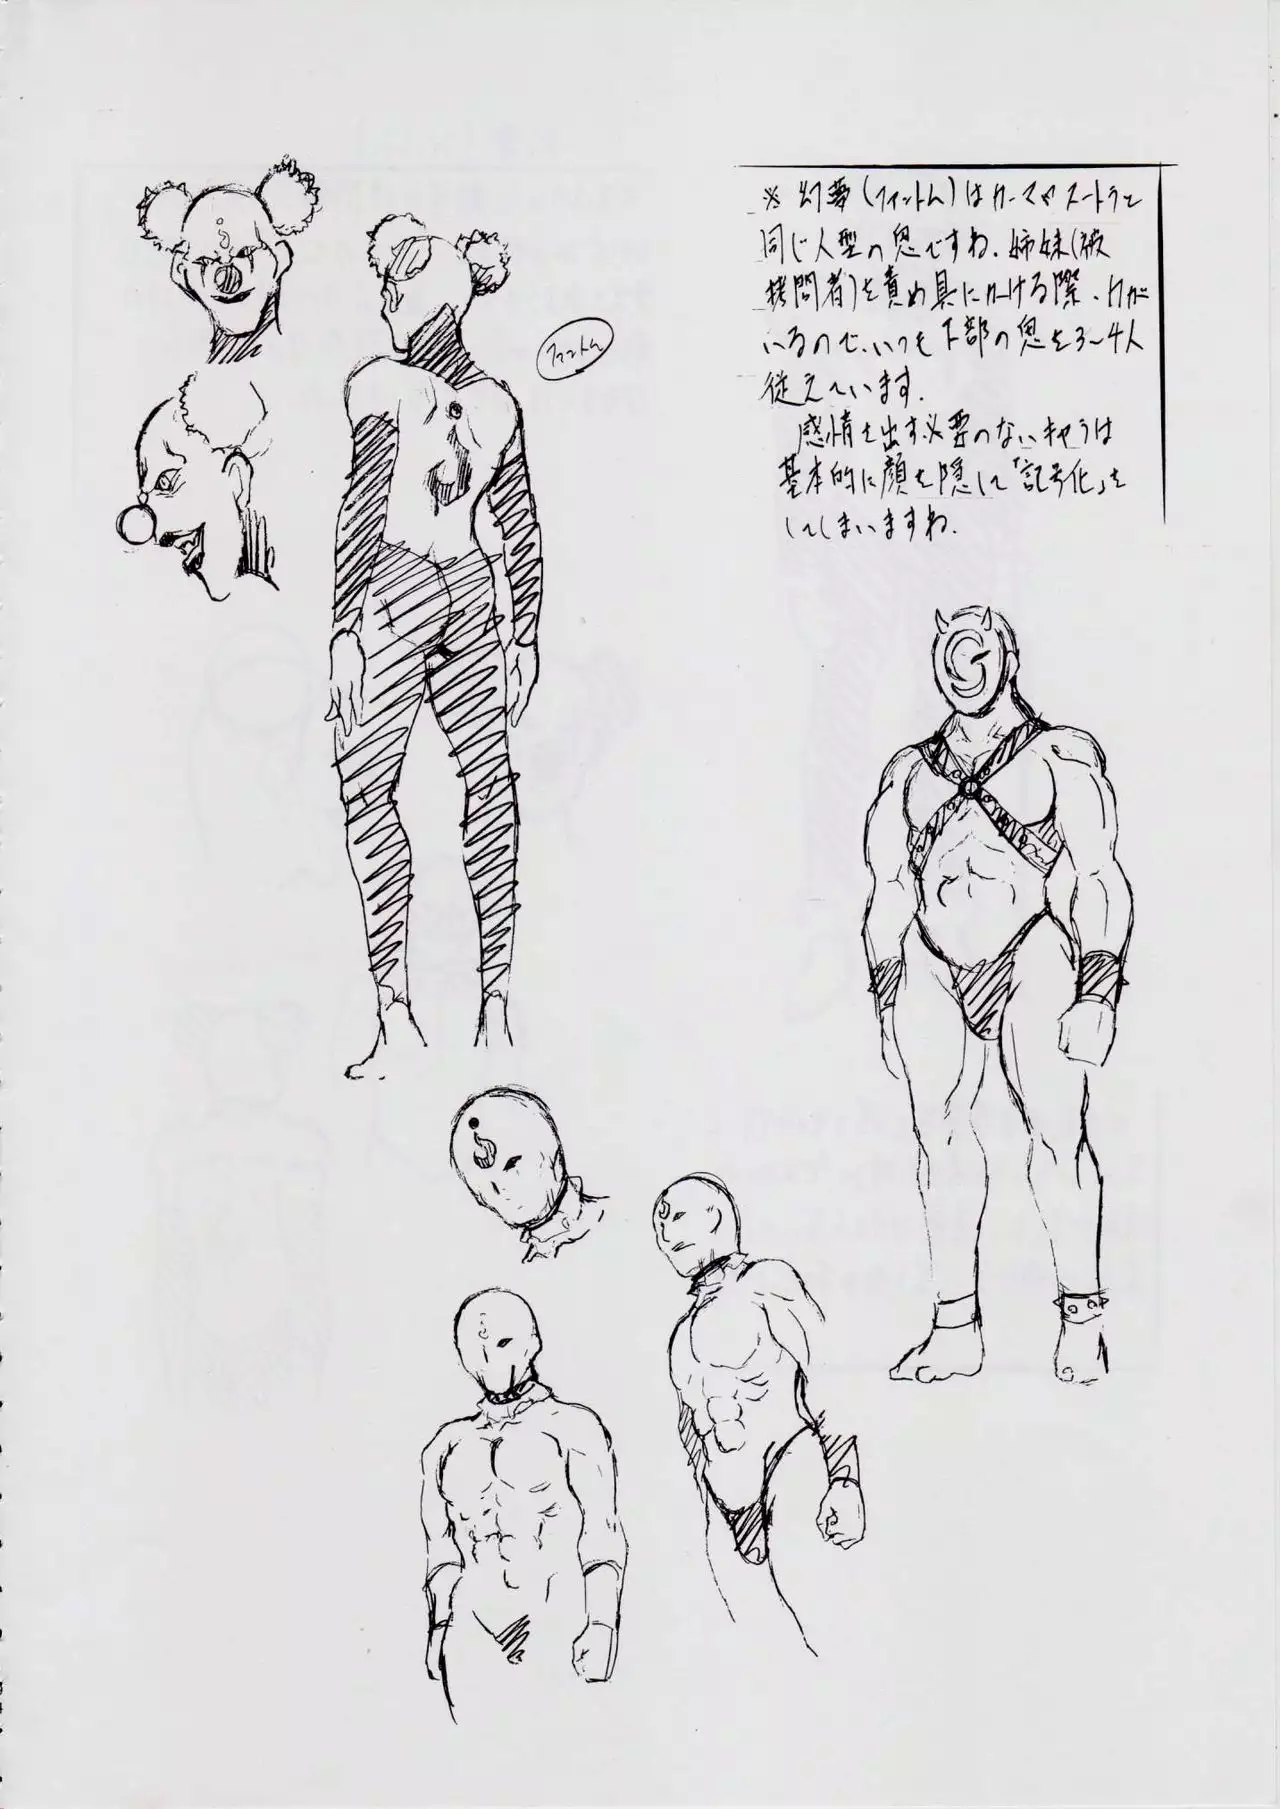 ※ 幻夢(ファントム)はカーマやスートラと
同じ人型の鬼ですね。姉妹(被
拷問者)を責め具にかける際、力が
いるので、いつも下部の鬼を3〜4人
従えています。
感情を出す必要のないキャラは
基本的に顔を隠して「記号化」を
してしまいますね。
ファントム